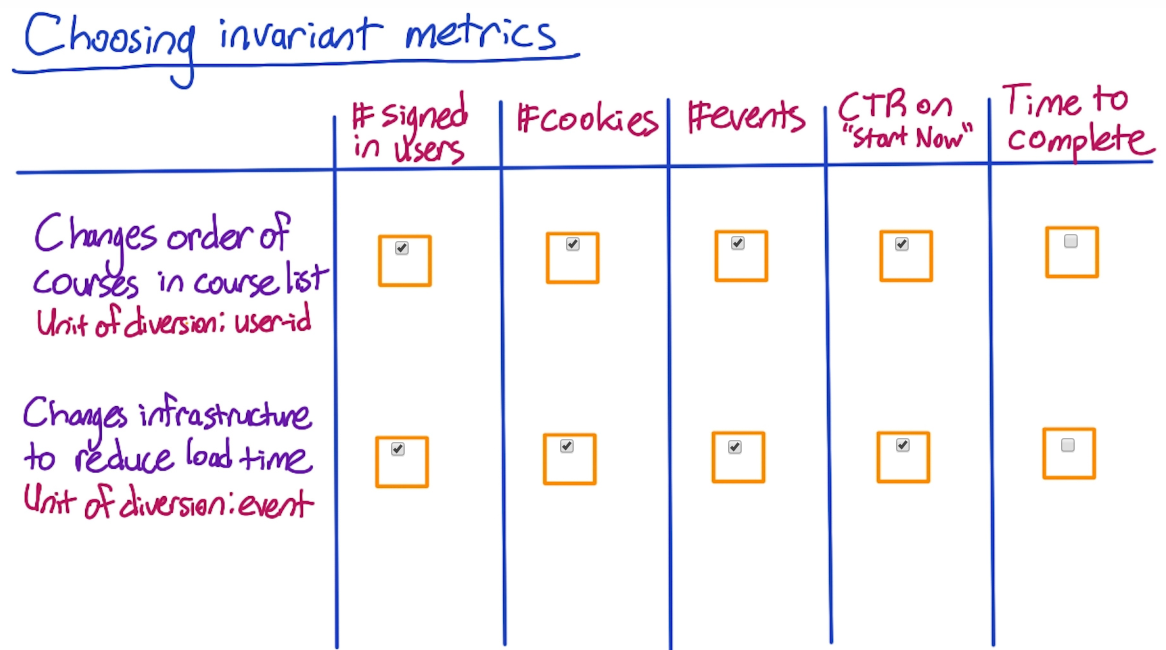 Choosing invariant metrics
#signed
in users
#cookies
#events
CTR on
"Start Now"
Time to
complete
Changes order of
courses in course list
Unit of diversion: user-id
Changes infrastructure
to reduce load time
Unit of diversion: event